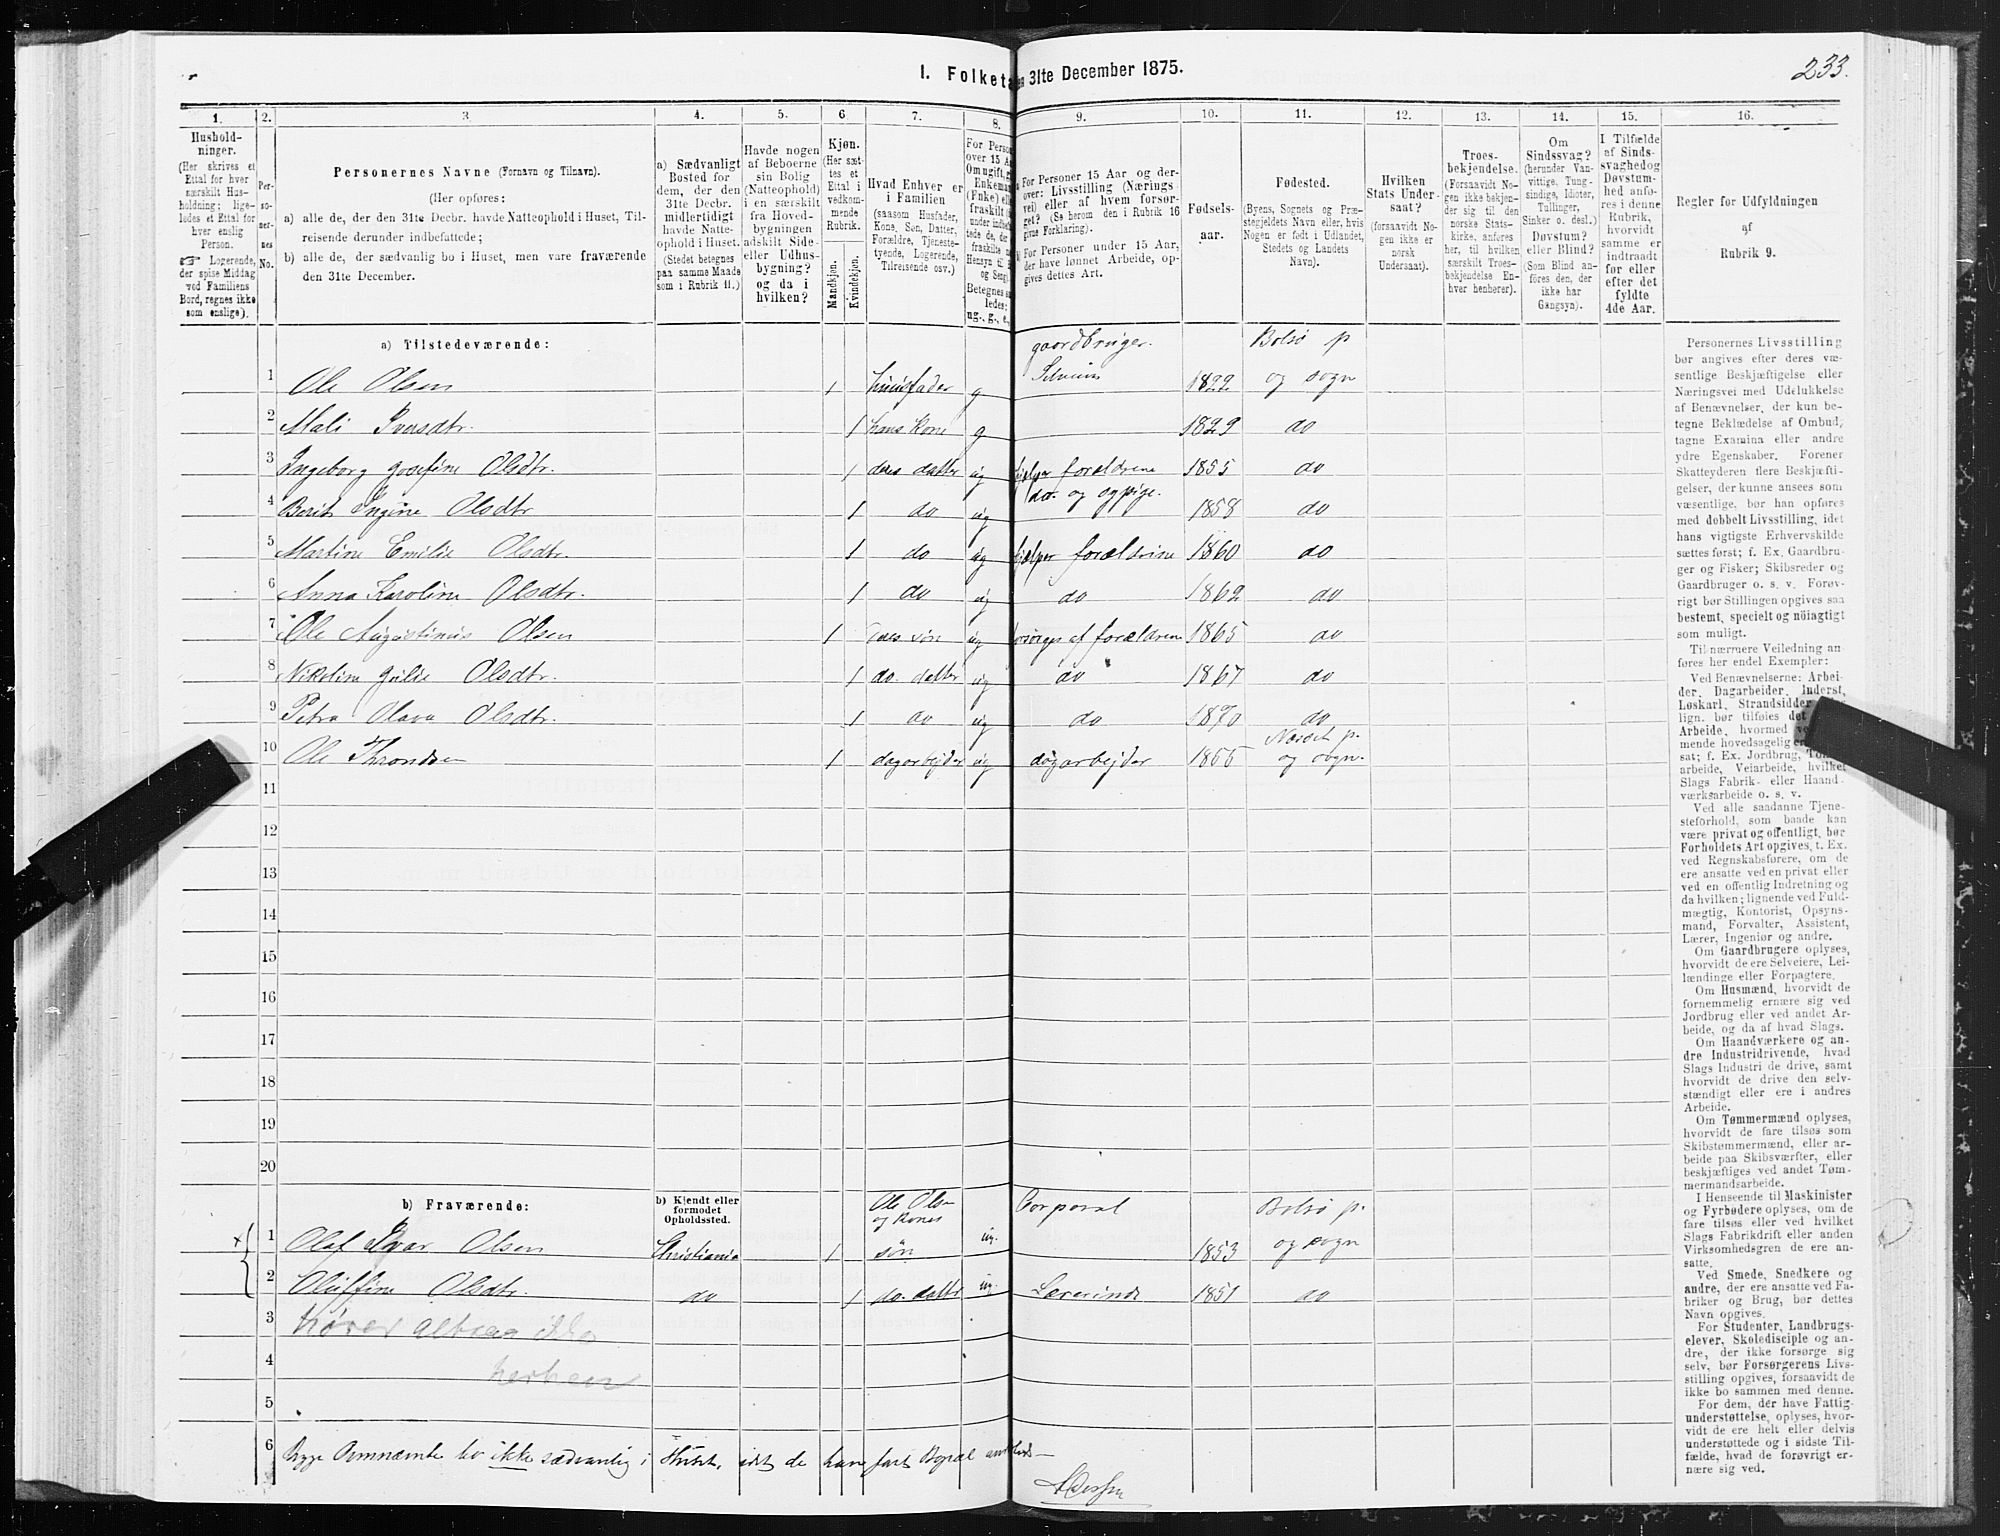 I. Folketa en 31te December 1875.
233.
1. 2. 3. 4. 5. 6 7. 8. 9. 10. 11. 12. 13. 14. 15. 16.
Hushold-
ninger.
(Her skrives et
Ettal for hver
særskilt Hus-
holdning; lige-
ledes et Ettal for
hver enslig
Person.
☞ Logerende,
der spise Middag
ved Familiens
Bord, regnes ikke
som enslige).
Per-
so-
ner-
nes
No.
Personernes Navne (Fornavn og Tilnavn).
(Her opføres:
a) alle de, der den 31te Decbr. havde Natteophold i Huset, Til-
reisende derunder indbefattede;
b) alle de, der sædvanlig bo i Huset, men vare fraværende
den 31te December.
a) Sædvanligt
Bosted for
dem, der den
31te Decbr.
midlertidigt
havde Natte-
ophold i Huset.
(Stedet betegnes
paa samme Maade
som i Rubrik 11.)
Havde nogen
af Beboerne
sin Bolig
(Natteophold)
i en særskilt
fra Hoved-
bygningen
adskilt Side-
eller Udhus-
bygning?
og da i
hvilken?
Kjøn.
(Her sæt-
tes et
Ettal i
vedkom-
mende
Rubrik.
Mandkjøn.
Kvindekjøn.
Hvad Enhver er
i Familien
(saasom Husfader,
Kone, Søn, Datter,
Forældre, Tjeneste-
tyende, Logerende,
Tilreisende osv.)
For Person
over 15 Aa
Om ugift, g
Enkeman
(Fnke) ell
fraskilt
under indbef
tede de, der
fraskilte
Hensyn til
og Seng
Betegnes s
ledes:
ug., g., e.,
For Personer 15 Aar og der-
over: Livsstilling (Nærings-
vei) eller af hvem forsør-
get? (Se herom den i Rubrik 16
givne Forklaring).
For Personer under 15 Aar,
der have lønnet Arbeide, op-
gives dettes Art.
Fødsels-
aar.
Fødested.
(Byens, Sognets og Præ-
stegjeldets Navn eller, hvis
Nogen er født i Udlandet,
Stedets og Landets
Navn).
Hvilken
Stats Under-
saat?
(forsaavidt No-
gen ikke er
norsk
Undersaat).
Troes-
bekjendelse.
(Forsaavidt No-
gen ikke bekjen-
der sig til den
norske Stats-
kirke, anføres
her, til hvilken
særskilt Troes-
bekjendelse En-
hver henhører).
Om
Sindssvag?
(herunder Van-
vittige, Tung-
sindige, Idioter,
Tullinger,
Sinker o. desl.)
Døvstum?
eller Blind?
(Som Blind an-
føres den, der
ikke har
Gangsyn).
I Tilfælde
af Sinds-
svaghed og
Døvstum-
hed anfø-
res i denne
Rubrik,
hvorvidt
samme er
indtraadt
før eller
efter det
fyldte
4de Aar.
Regler for Udfyldningen
af
Rubrik 9.
a) Tilstedeværende:
gaardbruger. Bolsø p
1 Ole Olsen 1 huusfader g Selveier 1822 og sogn
2 Mali Iversdtr. 1 hans Kone g 1829 do
3 Ingeborg Josefine Olsdtr. 1 deres datter ug hjelper forældrene 1855 do
4 Berit Ingine Olsdtr 1 do ug do. og sypige. 1858 do
5 Martine Emilie Olsdtr. 1 do ug hjelper forældrene 1860 do
6 Anna Karoline Olsdtr. 1 do ug do 1862 do
7 Ole Augustinus Olsen 1 deres søn ug forsørges af forældrene 1865 do
8 Nikoline Julie Olsdtr. 1 do. datter ug do 1867 do
9 Petra Olava Olsdtr. 1 do ug do 1870 do
10 Ole Throndsen 1 dagarbejder ug dagarbejder 1855 Nesset p. og sogn.
11
12
13
14
15
16
17
18
19
20
b) Fraværende:
b) Kjendt eller
formodet
Opholdssted.
Ole Olsen og Kones Corporal Bolsø p.
1 Olaf Ivar Olsen Christiania 1 søn ug. 1853 og sogn
2 Oluffine Olsdtr. do 1 do. datter ug. Lærerinde 1851 do
3 hører altsaa ikke
4 herhen
5
6 Begge Ovennævnte bo ikke sædvanlig i Huset, idet de have fast Bopæl andsteds
Personernes Livsstilling
bør angives efter deres væ-
sentlige Beskjæftigelse eller
Næringsvei med Udelukkelse
af Benævnelser, der kun be-
tegne Beklædelse af Ombud,
tagne Examina eller andre
ydre Egenskaber. Forener
Skatteyderen flere Beskjæfti-
gelser, der kunne ansees som
væsentlige, bør han opføres
med dobbelt Livsstilling, idet
hans vigtigste Erhvervskilde
sættes først; f. Ex. Gaardbru-
ger og Fisker; Skibsreder og
Gaardbruger o. s. v. Forøv-
rigt bør Stillingen opgives saa
bestemt, specielt og nøiagtigt
som muligt.
Til nærmere Veiledning an-
føres her endel Exempler:
Ved Benævnelserne: Arbei-
der, Dagarbeider, Inderst,
Løskarl, Strandsidder
lign. bør tilføies det
Arbeide, hvormed ve
mende hovedsagelig er
sat; f. Ex. Jordbrug, Tøm
arbeide, Veiarbeide, hvilket
Slags Fabrik- eller Haand-
værksarbeide o. s. v.
Ved alle saadanne Tjene-
steforhold, som baade kan
være privat og offentligt, bør
Forholdets Art opgives, t. Ex.
ved Regnskabsførere, om de
ere ansatte ved en privat eller
ved en offentlig Indretning og
da hvilken; lignende ved Fuld-
mægtig, Kontorist, Opsyns-
mand, Forvalter, Assistent,
Lærer, Ingeniør og andre.
Om Gaardbrugere oplyses,
hvorvidt de ere Selveiere, Lei-
lændinge eller Forpagtere.
Om Husmænd, hvorvidt de
fornemmelig ernære sig ved
Jordbrug eller ved andet Ar-
beide, og da af hvad Slags.
Om Haandværkere og an-
dre Industridrivende, hvad
Slags Industri de drive, samt
hvorvidt de drive den selv-
stændigt eller ere i andres
Arbeide.
Om Tømmermænd oplyses,
hvorvidt de fare tilsøs som
Skibstømmermænd, eller ar-
beide paa Skibsværfter, eller
beskjæftiges ved andet Tøm-
mermandsarbeide.
I Henseende til Maskinister
og Fyrbødere oplyses, om de
fare tilsøs eller ved hvilket
Slags Fabrikdrift eller anden
Virksomhedsgren de ere an-
satte.
Ved Smede, Snedkere og
andre, der ere ansatte ved Fa-
briker og Brug, bør dettes
Navn opgives.
For Studenter, Landbrugs-
elever, Skoledisciple og an-
dre, der ikke forsørge sig
selv, bør Forsørgerens Livs-
stilling opgives, forsaavidt de
ikke bo sammen med denne.
For dem, der have Fattig-
understøttelse, oplyses, hvor-
vidt de ere helt eller delvis
understøttede og i sidste Til-
fælde, hvad de forøvrigt er-
nære sig ved.